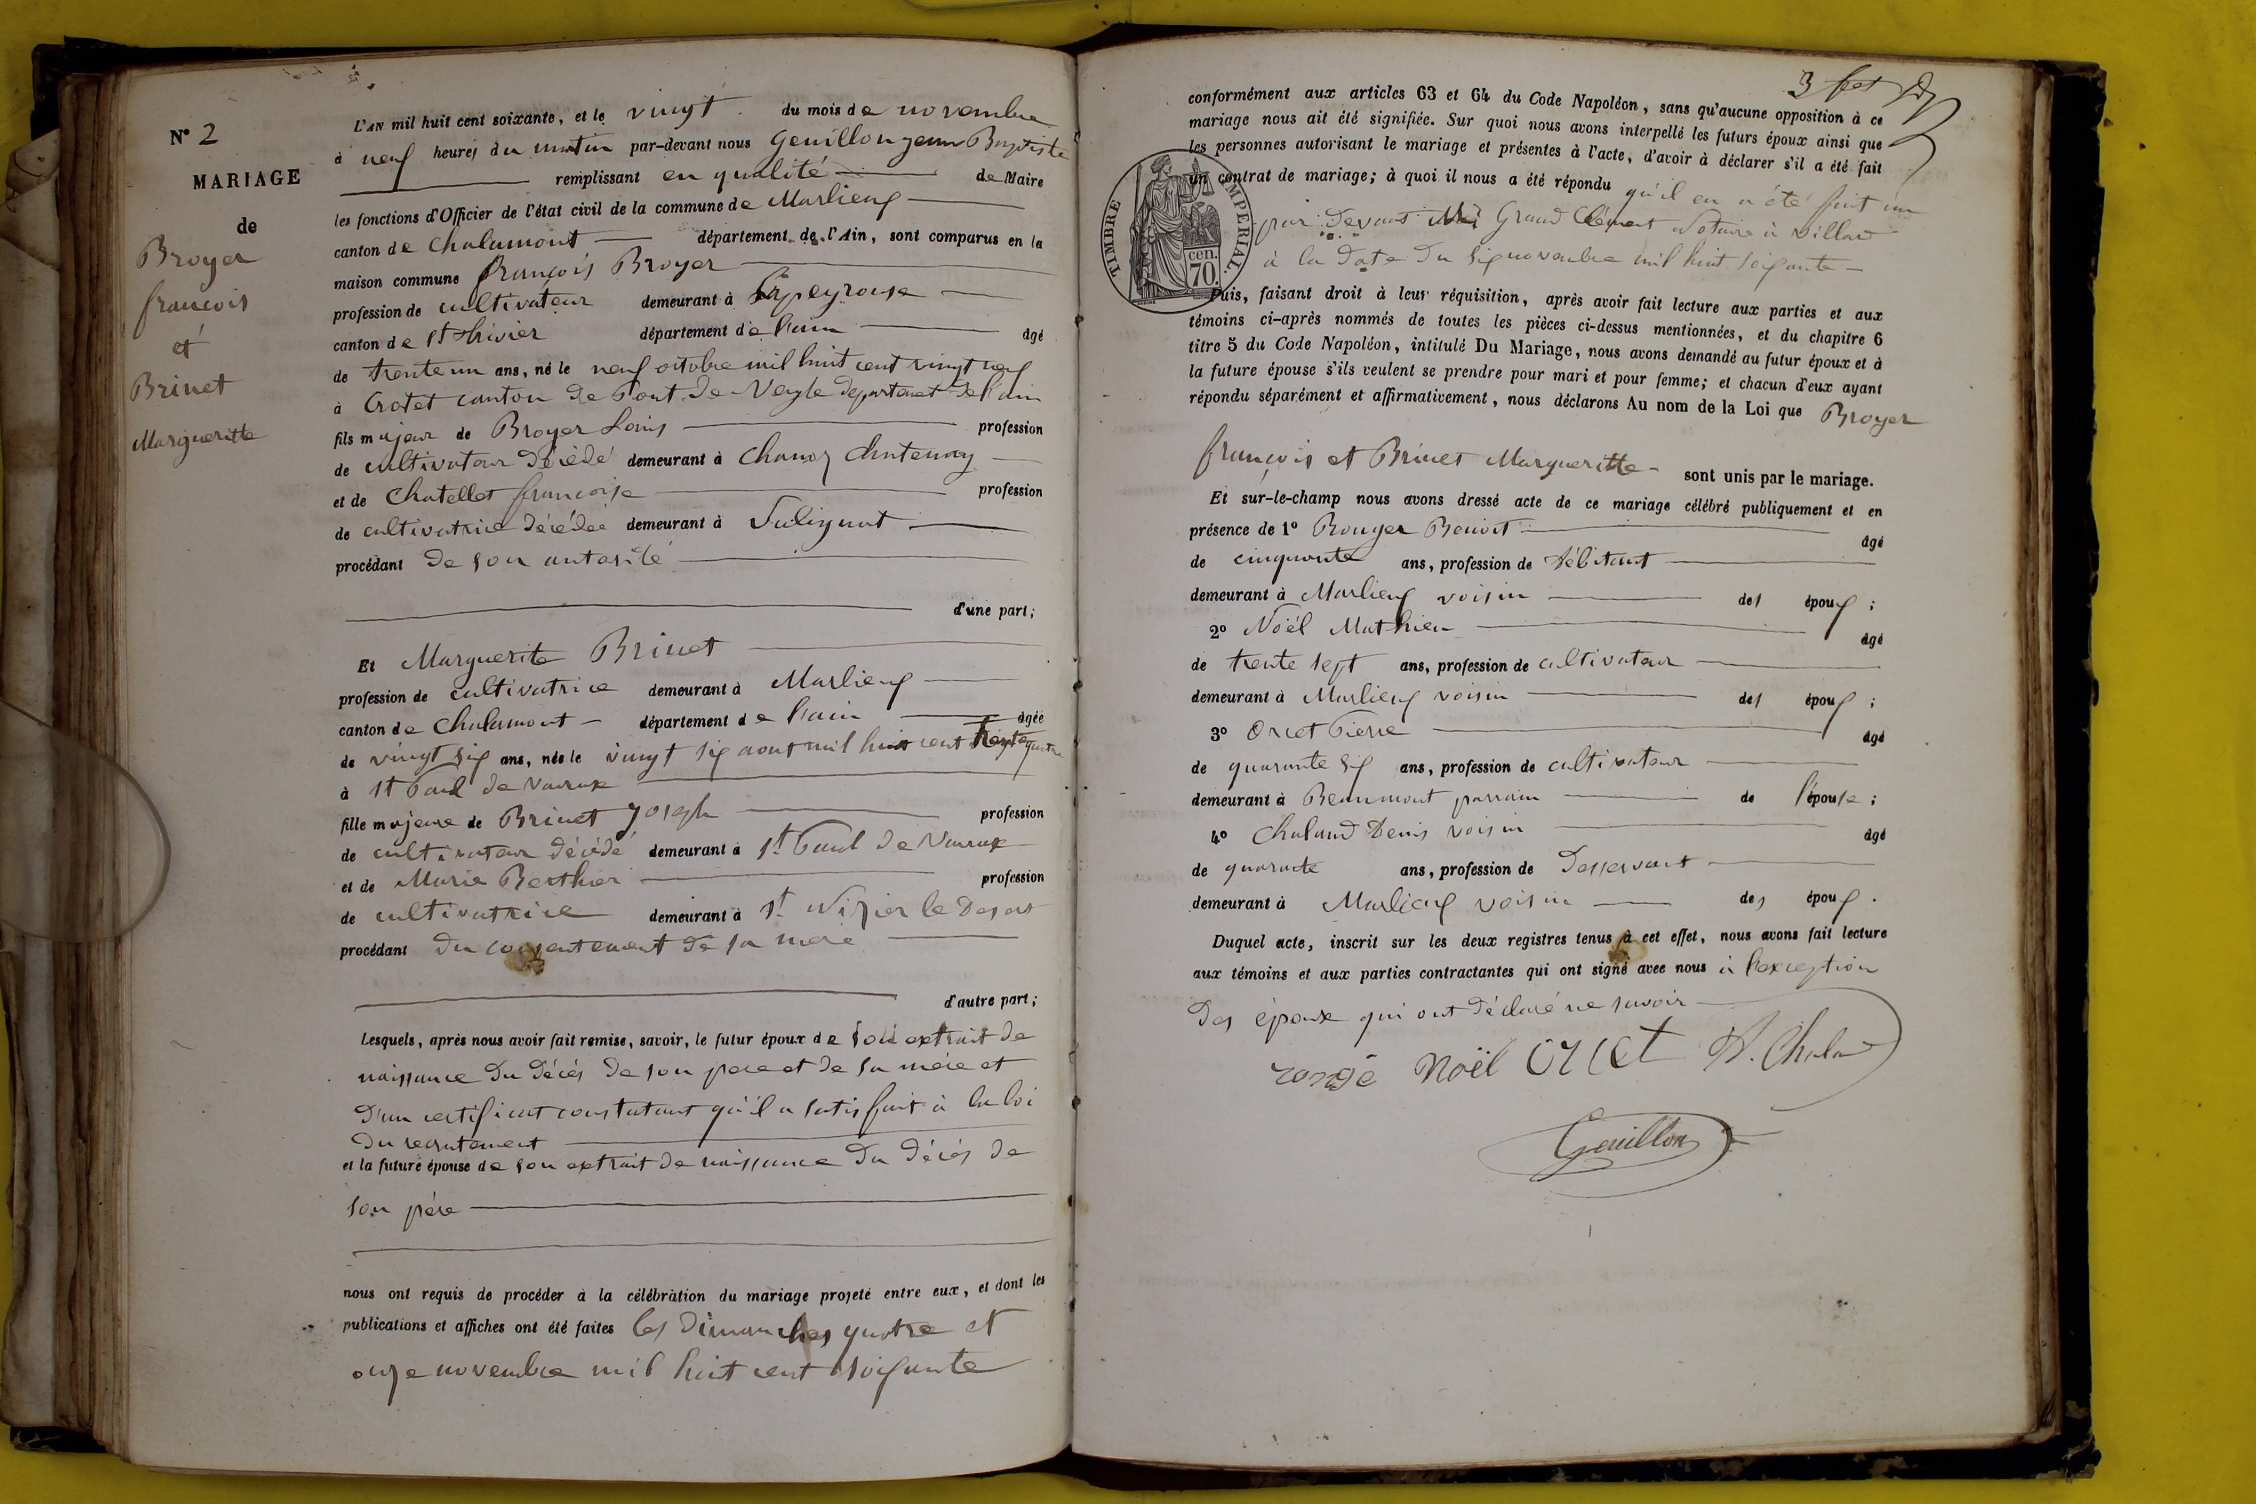 N° 2
MARIAGE
de
Broyer
françois
et
Brinet
Margueritte
L'AN mil huit cent soixante, et le vingt du mois de novembre
à neuf heures du matin par-devant nous Genillon jean Baptiste
remplissant en qualité de Maire
les fonctions d'Officier de l'état civil de la commune de Marlieux
canton de Chalamont département de l'Ain, sont comparus en la
maison commune françois Broyer
profession de cultivateur demeurant à Lapeyrouse
canton de St trivier département de l'ain âgé
de trente un ans, né le neuf octobre mil huit cent vingt neuf
à Crotet canton de Pont de Veyle departement de l'ain
fils majeur de Broyer Louis profession
de cultivateur décédé demeurant à Chanoz Chatenay
et de Chatellet françoise profession
de cultivatrice décédée demeurant à Sulignat
procédant de son autorité
d'une part;
Et Marguerite Brinet
profession de cultivatrice demeurant à Marlieux
canton de Chalamont département de l'ain âgée
de vingt six ans, née le vingt six aout mil huit cent trente quatre
à St Paul de Varax
fille majeure de Brinet Joseph profession
de cultivateur décédé demeurant à St Paul de Varax
et de Marie Berthier profession
de cultivatrice demeurant à St Nizier le Desert
procédant du consentement de sa mere
d'autre part;
Lesquels, après nous avoir fait remise, savoir, le futur époux de son extrait de
naissance du décés de son pere et de sa mére et
d'un certificat constatant qu'il a satisfait à la loi
du recrutement
et la future épouse de son extrait de naissance du décés de
son pére
nous ont requis de procéder à la célébration du mariage projeté entre eux, et dont les
publications et affiches ont été faites les dimanches quatre et
onze novembre mil huit cent soixante
conformément aux articles 63 et 64 du Code Napoléon, sans qu'aucune opposition à ce
mariage nous ait été signifiée. Sur quoi nous avons interpellé les futurs époux ainsi que
les personnes autorisant le mariage et présentes à l'acte, d'avoir à déclarer s'il a été fait
un contrat de mariage; à quoi il nous a été répondu qu'il en a été fait un
par devant Grand Clément Notaire à Villars
à la date du six novembre mil huit soixante
TIMBRE IMPERIAL.
70 cen.
Puis, faisant droit à leur réquisition, après avoir fait lecture aux parties et aux
témoins ci-après nommés de toutes les pièces ci-dessus mentionnées, et du chapitre 6
titre 5 du Code Napoléon, intitulé Du Mariage, nous avons demandé au futur époux et à
la future épouse s'ils veulent se prendre pour mari et pour femme; et chacun d'eux ayant
répondu séparément et affirmativement, nous déclarons Au nom de la Loi que Broyer
françois et Brinet Margueritte sont unis par le mariage.
Et sur-le-champ nous avons dressé acte de ce mariage célébré publiquement et en
présence de 1° Rouger Benoit âgé
de cinquante ans, profession de débitant
demeurant à Marlieux voisin des époux;
2° Noël Mathieu âgé
de trente sept ans, profession de cultivateur
demeurant à Marlieux voisin des époux;
3° Orcet Pierre âgé
de quarante six ans, profession de cultivateur
demeurant à Beaumont parrain de l'épouse;
4° Chaland Denis voisin âgé
de quarante ans, profession de Desservant
demeurant à Marlieux voisin des époux.
Duquel acte, inscrit sur les deux registres tenus à cet effet, nous avons fait lecture
aux témoins et aux parties contractantes qui ont signé avec nous à l'exception
des époux qui ont déclaré ne savoir
rongé Noël Orcet D. Chaland
Genillon